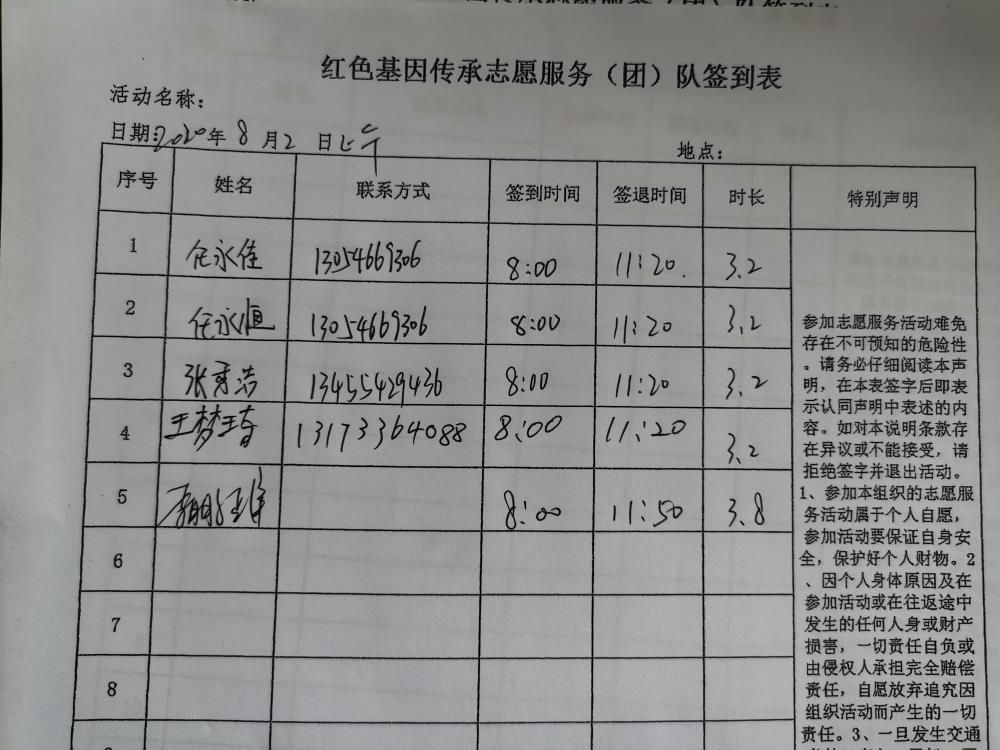 红色基因传承志愿服务（团）队签到表
活动名称：
日期：2020年8月2日上午
地点：
序号 姓名 联系方式 签到时间 签退时间 时长 特别声明
1 任永佳 13054669306 8:00 11:20 3.2
2 任永恒 13054669306 8:00 11:20 3.2
3 张秀洁 13455429436 8:00 11:20 3.2
4 王梦琦 13173364088 8:00 11:20 3.2
5 8:00 11:50 3.8
6
7
8
参加志愿服务活动难免
存在不可预知的危险性
。请务必仔细阅读本声
明，在本表签字后即表
示认同声明中表述的内
容。如对本说明条款存
在异议或不能接受，请
拒绝签字并退出活动。
1、参加本组织的志愿服
务活动属于个人自愿，
参加活动要保证自身安
全，保护好个人财物。2
、因个人身体原因及在
参加活动或在往返途中
发生的任何人身或财产
损害，一切责任自负或
由侵权人承担完全赔偿
责任，自愿放弃追究因
组织活动而产生的一切
责任。3、一旦发生交通